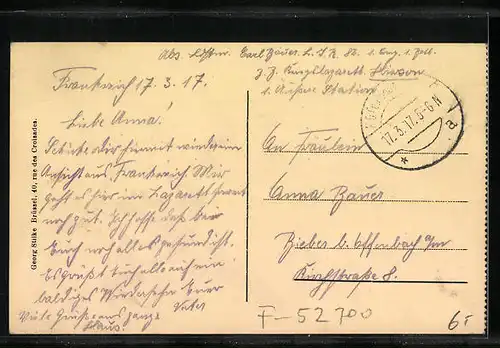 Abs. Ldstm. Carl Bauer L. I. R. 82. 1. Comp. 1. Batl.
z. Z. Kriegslazarett Hirson
1. Äußere Station
Frankreich 17.3.17.
Liebe Anna!
Schicke Dir hiermit wieder ein
Ansicht aus Frankreich. Mir
geht es hier im Lazarett
noch gut. Ich hoffe daß bei
Euch noch alles gesund ist.
Es grüßt Euch alle auf ein
baldiges Wiedersehn Euer
Vater
Viele Grüße ans ganze
Haus.
17.3.17. 5-6 N
An Fräulein
Anna Bauer
Bieber b. Offenbach a/m
Kirchstraße 8.
Georg Stilke Brüssel, 40, rue des Croisades.
F-52700
6,-